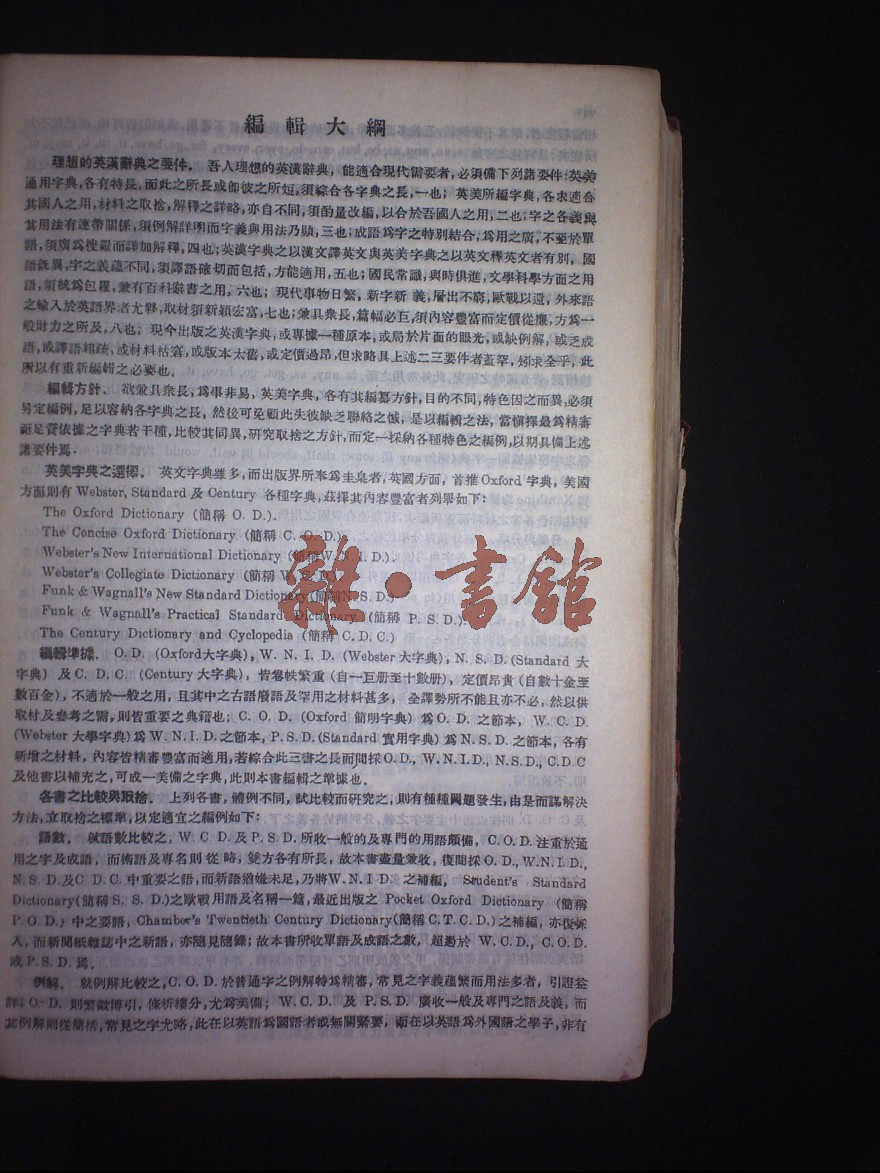 編輯大綱
理想的英漢辭典之要件．吾人理想的英漢辭典，能適合現代需要者，必須備下列諸要件：英美
通用字典，各有特長，而此之所長或卽彼之所短，須綜合各字典之長，一也；英美所編字典，各求適合
其國人之用，材料之取捨，解釋之詳略，亦自不同，須酌量改編，以合於吾國人之用，二也；字之各義與
其用法有連帶關係，須例解詳明而字義與用法乃顯，三也；成語爲字之特別結合，爲用之廣，不亞於單
語，須廣爲搜羅而詳加解釋，四也；英漢字典之以漢文譯英文與英美字典之以英文釋英文者有別，國
語旣異，字之義蘊不同，須譯語確切而包括，方能適用，五也；國民常識，與時俱進，文學科學方面之用
語，須統爲包羅，兼有百科辭書之用，六也；現代事物日繁，新字新義，層出不窮，歐戰以還，外來語
之輸入於英語界者尤夥，取材須新穎宏富，七也；兼具衆長，篇幅必巨，須內容豐富而定價從廉，方爲一
般財力之所及，八也；現今出版之英漢字典，或專據一種原本，或局於片面的眼光，或缺例解，或乏成
語，或譯語粗疏，或材料枯窘，或版本太舊，或定價過昂，但求略具上述二三要件者蓋罕，矧求全乎，此
所以有重新編輯之必要也．
編輯方針．欲兼具衆長，爲事非易，英美字典，各有其編纂方針，目的不同，特色因之而異，必須
另定編例，足以容納各字典之長，然後可免顧此失彼缺乏聯絡之憾，是以編輯之法，當愼擇最爲精審
而足資依據之字典若干種，比較其同異，硏究取捨之方針，而定一採納各種特色之編例，以期具備上述
諸要件焉．
英美字典之選擇．英文字典雖多，而出版界所奉爲圭臬者，英國方面，首推Oxford字典，美國
方面則有 Webster, Standard 及 Century 各種字典，茲擇其內容豐富者列舉如下：
The Oxford Dictionary (簡稱 O. D.).
The Concise Oxford Dictionary (簡稱 C. O. D.)
Webster's New International Dictionary (簡稱W. N. I. D.).
Webster's Collegiate Dictionary (簡稱 W. C. D.)
Funk & Wagnall's New Standard Dictionary(簡稱N. S. D.)
Funk & Wagnall's Practical Standard Dictionary (簡稱 P. S. D.).
The Century Dictionary and Cyclopedia (簡稱 C. D. C.)
雜·書館
編輯準據．O. D. (Oxford大字典), W. N. I. D. (Webster 大字典), N. S. D. (Standard 大
字典) 及 C. D. C. (Century 大字典)，皆卷帙繁重（自一巨册至十數册），定價昂貴（自數十金至
數百金），不適於一般之用，且其中之古語廢語及罕用之材料甚多，全譯勢所不能且亦不必，然以供
取材及參考之需，則皆重要之典籍也；C. O. D. (Oxford 簡明字典) 爲 O. D. 之節本，W. C. D.
(Webster 大學字典) 爲 W. N. I. D. 之節本，P. S. D. (Standard 實用字典) 爲 N. S. D. 之節本，各有
新增之材料，內容皆精審豐富而適用，若綜合此三書之長而間採 O. D., W. N. I. D., N. S. D., C. D. C
及他書以補充之，可成一美備之字典，此則本書編輯之準據也．
各書之比較與取捨．上列各書，體例不同，試比較而硏究之，則有種種問題發生，由是而謀解決
方法，立取捨之標準，以定適宜之編例如下：
語數．就語數比較之，W. C D. 及 P. S. D. 所收一般的及專門的用語頗備，C. O. D. 注重於通
用之字及成語，而術語及專名則從略，雙方各有所長，故本書盡量兼收，復間採 O. D., W. N. I. D.,
N. S. D. 及 C D. C. 中重要之語，而新語猶嫌未足，乃將 W. N. I D. 之補編，Student's Standard
Dictionary (簡稱 S. S. D.) 之歐戰用語及名稱一篇，最近出版之 Pocket Oxford Dictionary (簡稱
P. O. D.) 中之要語，Chamber's Twentieth Century Dictionary (簡稱 C. T. C. D.) 之補編，亦復採
入，而新聞紙雜誌中之新語，亦隨見隨錄；故本書所收單語及成語之數，超過於 W. C. D., C. O. D.
或 P. S. D. 焉．
例解．就例解比較之，C. O. D. 於普通字之例解特爲精審，常見之字義蘊繁而用法多者，引證益
詳；O. D. 則繁徵博引，條析縷分，尤爲美備；W. C. D. 及 P. S. D. 廣收一般及專門之語及義，而
其例解則從簡括，常見之字尤略，此在以英語爲國語者或無關緊要，而在以英語爲外國語之學子，非有